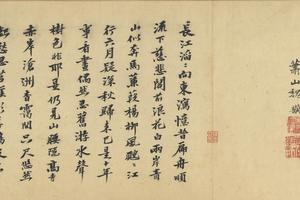 蕭山
長江滔滔向東瀉憶昔扁舟順
流下慈悲閣前浪花白兩岸青
山似奔馬蒹葭楊柳風颼颼江
行六月疑深秋歸來已是十年
事看畫偶然思舊游水聲
樹色非耶是仍見山腰隱高寺
赤岸滄洲杳靄間只尺悠然